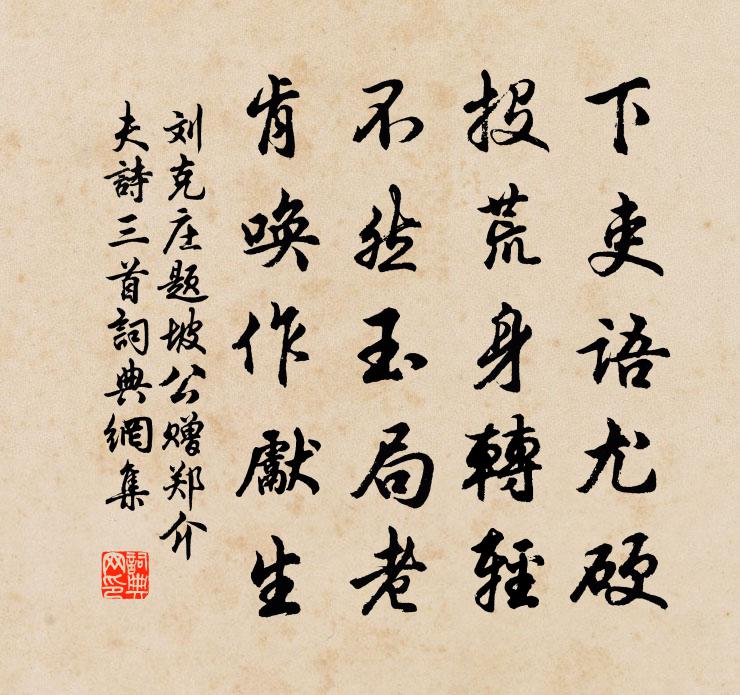 下吏语尤硬
投荒身轉輕
不然玉局老
肯唤作獻生
刘克庄题坡公赠郑介
夫詩三首詞典網集
詞典
网印